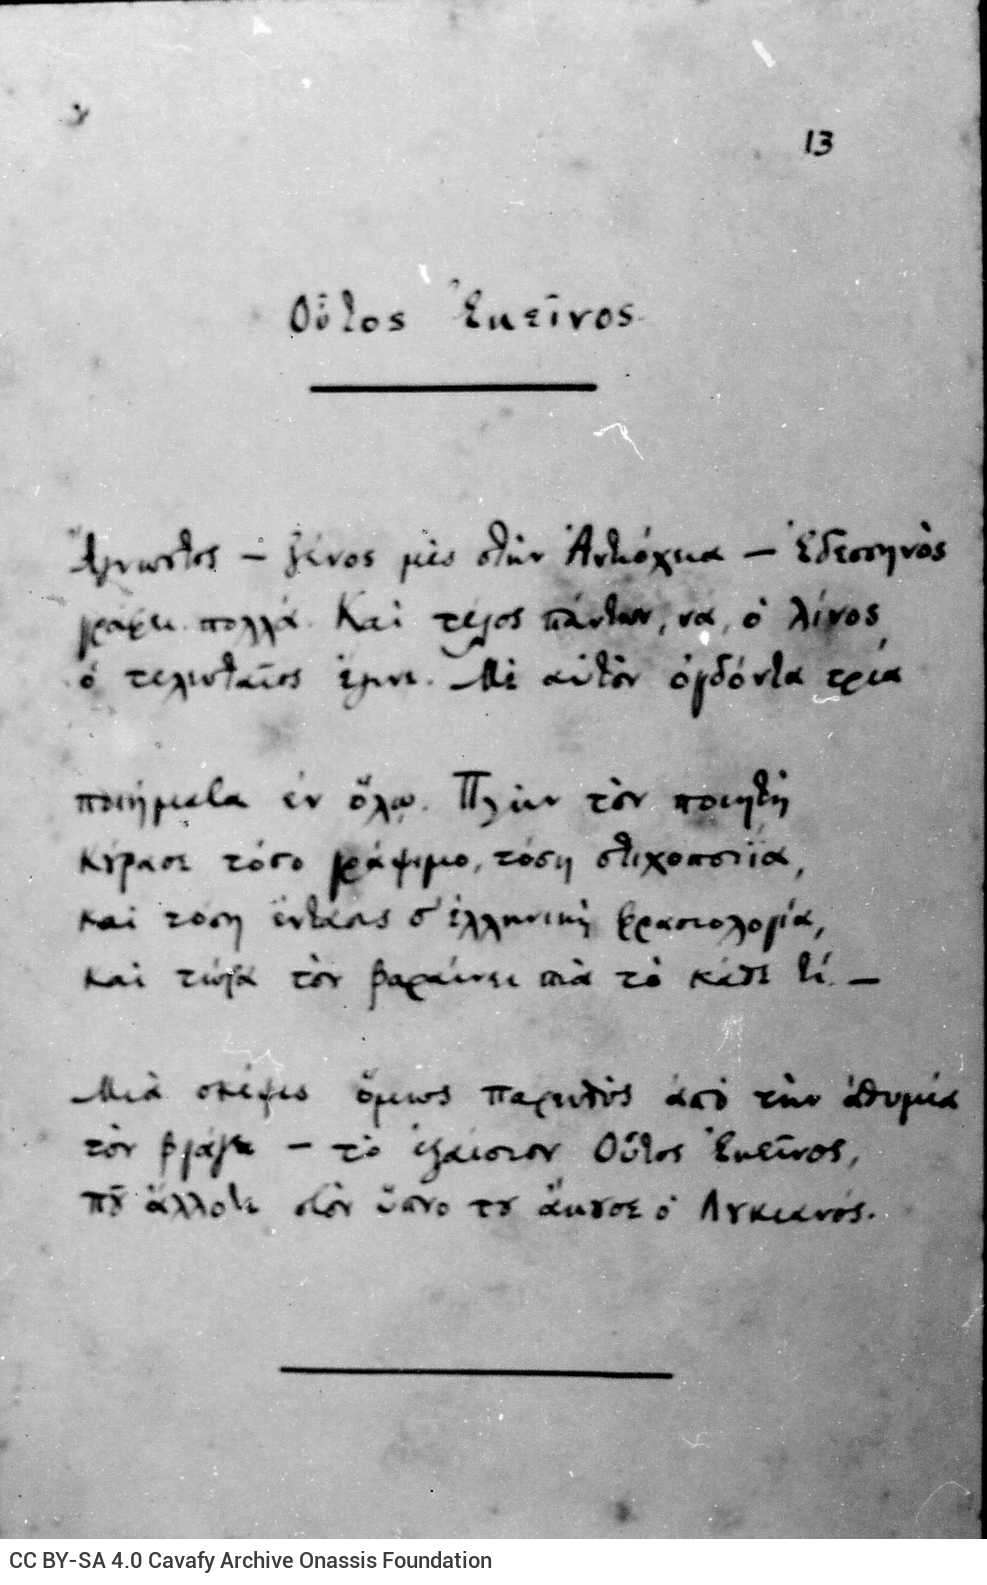 13
Οὗτος Ἐκεῖνος.
Ἄγνωστος — ξένος μὲς στὴν Ἀντιόχεια — Ἐδεσσηνὸς
γράφει πολλά. Καὶ τέλος πάντων, νά, ὁ λίνος
ὁ τελευταῖος ἔγινε. Μὲ αὐτὸν ὀγδόντα τρία
ποιήματα ἐν ὅλῳ. Πλὴν τὸν ποιητὴ
κούρασε τόσο γράψιμο, τόση στιχοποιΐα,
καὶ τόση ἔντασις σ' ἑλληνικὴ φρασιολογία,
καὶ τώρα τὸν βαραίνει πιὰ τὸ κάθε τί. —
Μιὰ σκέψις ὅμως παρευθὺς ἀπὸ τὴν ἀθυμία
τὸν βγάζει — τὸ ἐξαίσιον Οὗτος Ἐκεῖνος,
ποῦ ἄλλοτε στὸν ὕπνο του ἄκουσε ὁ Λουκιανός.
CC BY-SA 4.0 Cavafy Archive Onassis Foundation